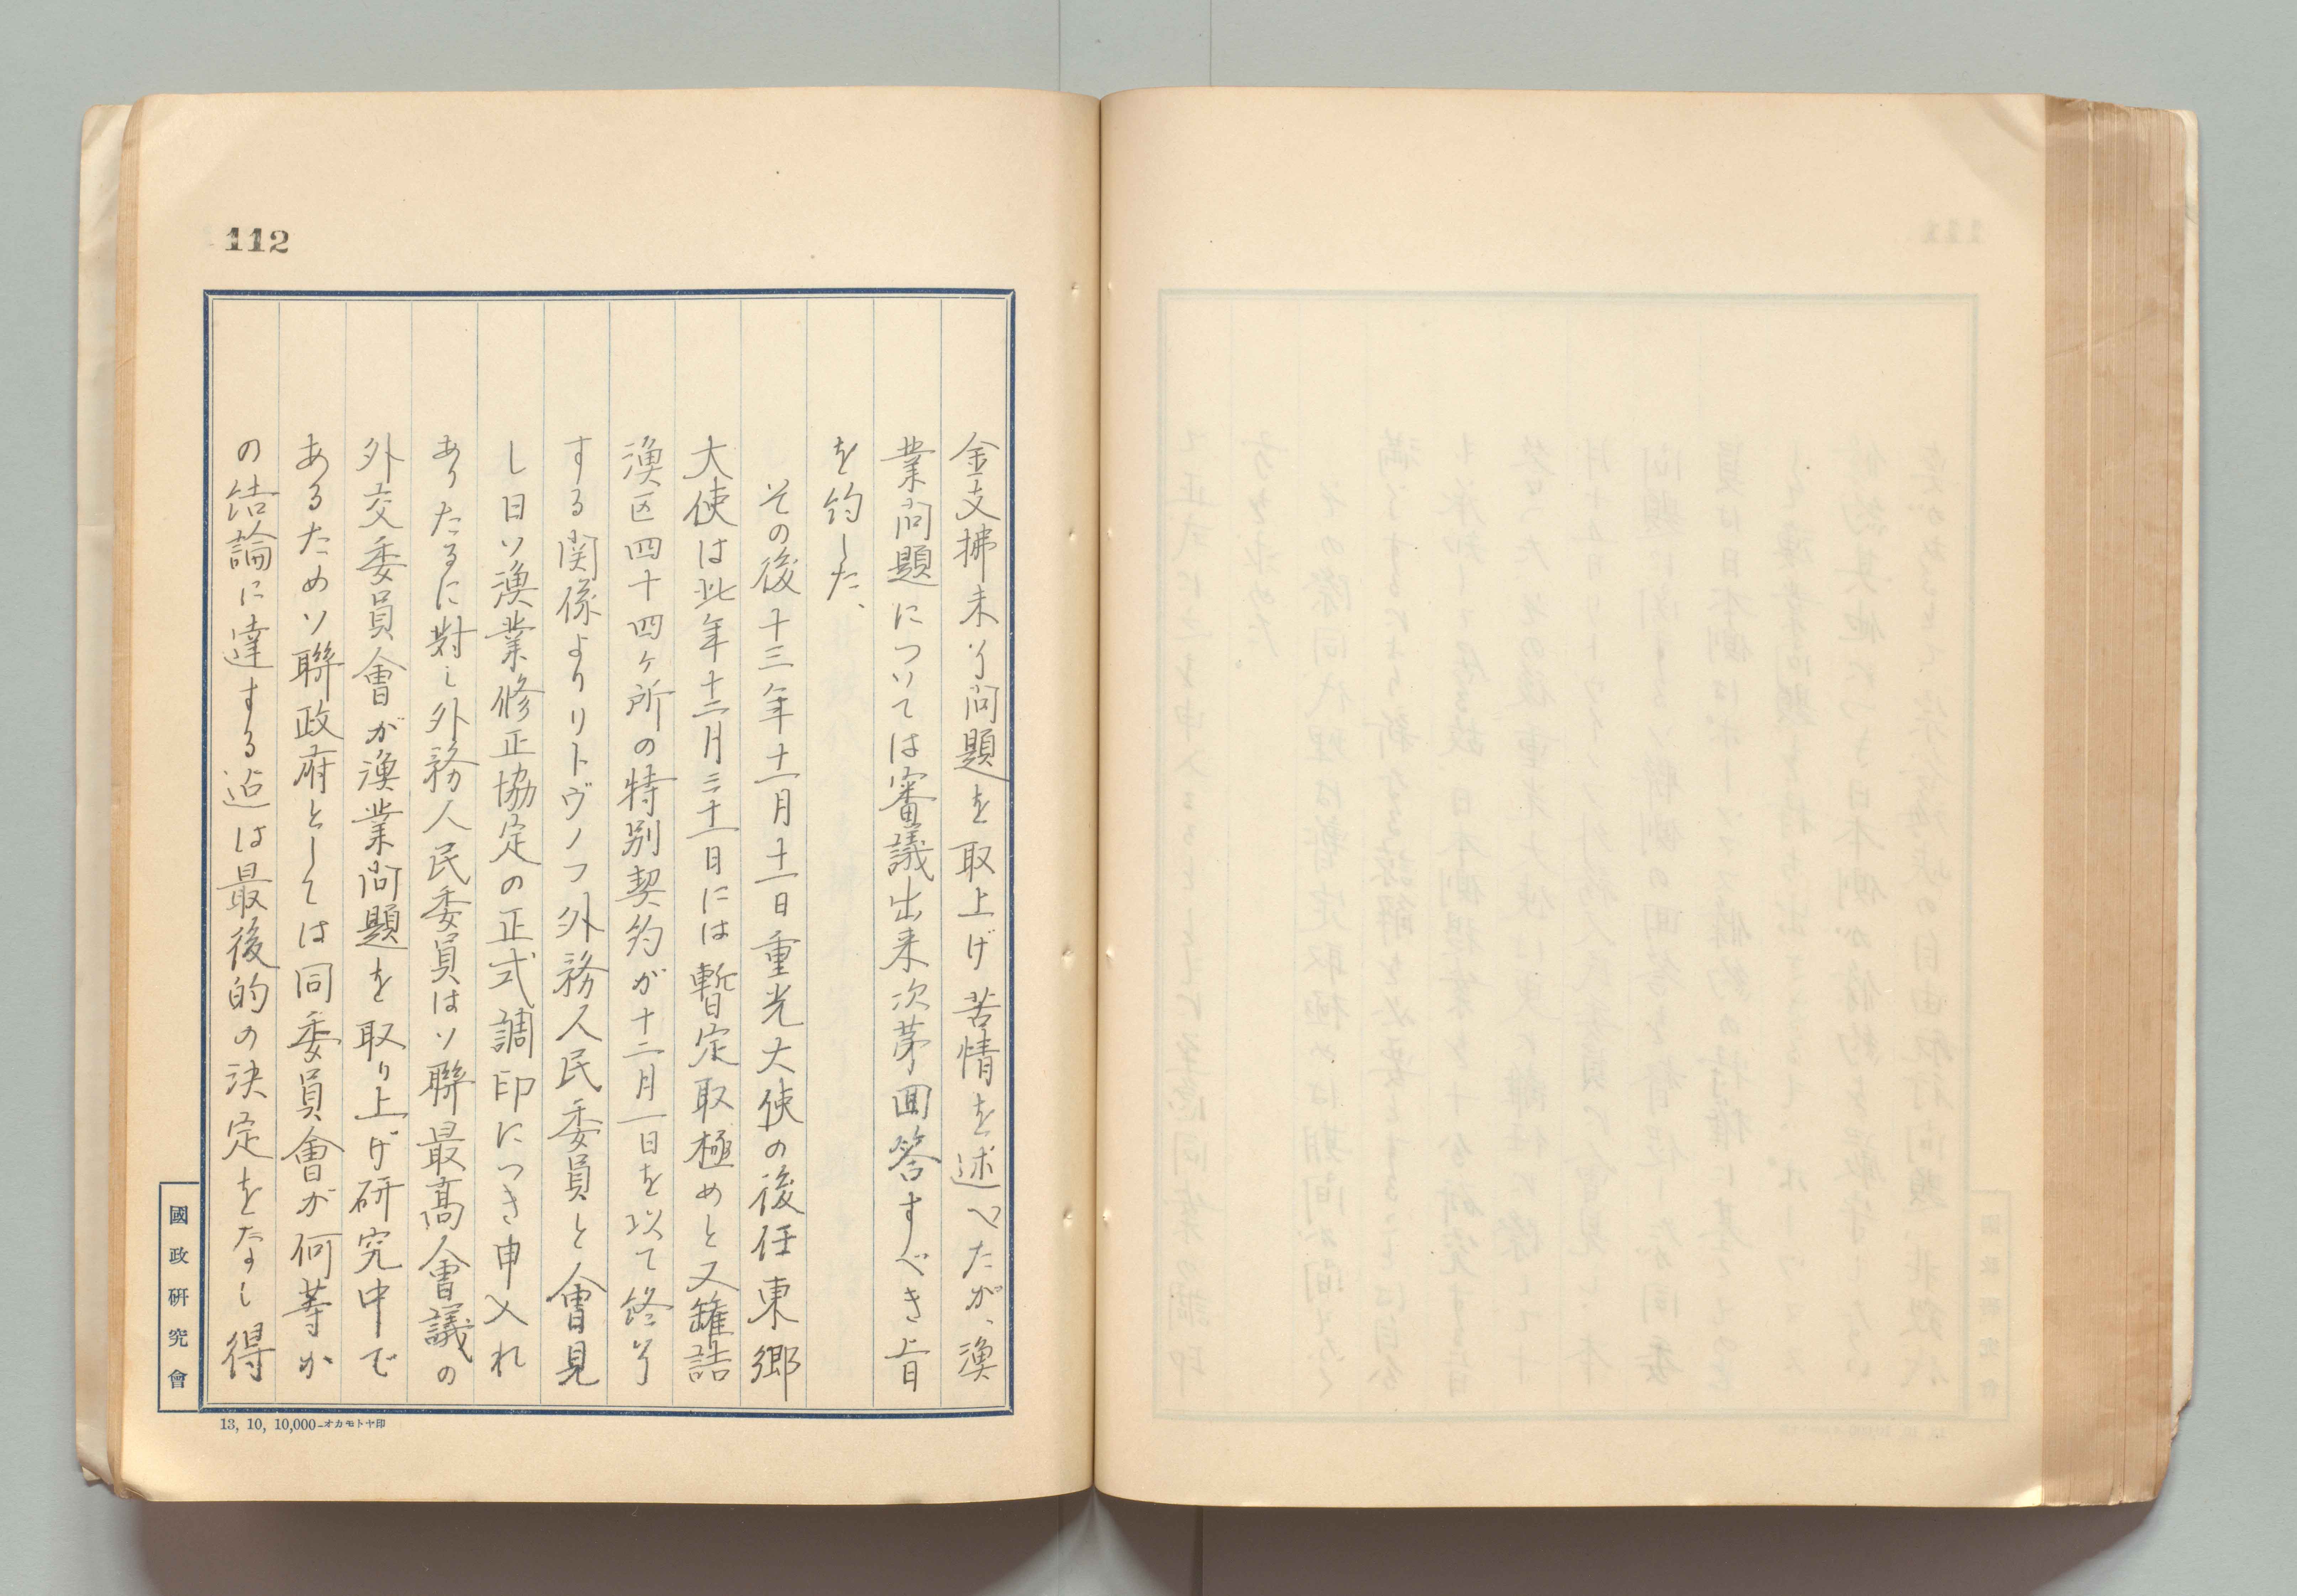 112
金支拂未了問題を取上げ苦情を述べたが、漁
業問題については審議出来次第回答すべき旨
を約した、
その後十三年十一月十一日重光大使の後任東郷
大使は此年十二月三十一日には暫定取極めと又罐詰
漁区四十四ヶ所の特別契約が十二月一日を以て終了
する関係よりリトヴノフ外務人民委員と會見
し日ソ漁業修正協定の正式調印につき申入れ
ありたるに對し外務人民委員はソ聯最高會議の
外交委員會が漁業問題を取り上げ研究中で
あるためソ聯政府としては同委員會が何等か
の結論に達する迄は最後的の決定をなし得
國政研究會
13, 10, 10,000—オカモトヤ印